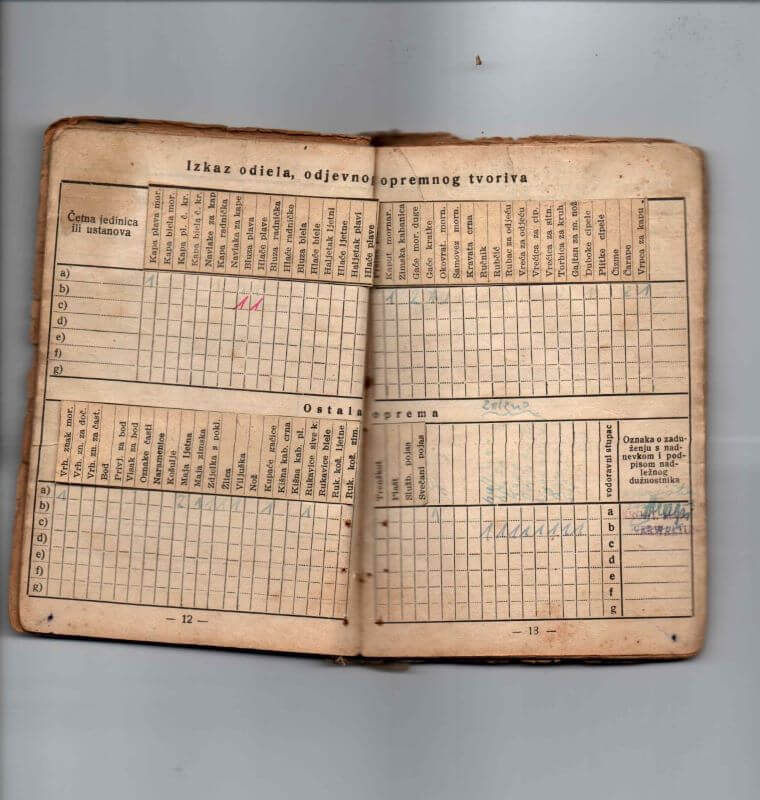 Izkaz odiela, odjevno opremnog tvoriva
Četna jedinica
ili ustanova
Kapa plava mor.
Kapa biela mor.
Kapa pl. č. kr.
Kapa biela č. kr.
Navlak. za kap
Kapa radnička
Navlaka za kape
Bluza plava
Hlače plave
Bluza radnička
Hlače radničke
Bluza biela
Hlače biele
Haljetak ljetni
Hlače ljetne
Haljetak plavi
Hlače plave
Kaput mornar.
Zimska kabanica
Gaće mor. duge
Gaće kratke
Okovrat. morn.
Samovez morn.
Kravata crna
Ručnik
Rubčić
Rubac za odjeću
Vreća za odjeću
Vrećica za cip.
Vrećica za sitn.
Torbica za kruh
Gajtan za m. nož
Duboke cipele
Plitke cipele
Čizme
Čarape
Vrpca za kapu
a) 1 1 1
b)
c) 1 1
d)
e)
f)
g)
Ostala oprema
Vrh. znak mor.
Vrh. zn. za doč.
Vrh. zn. za čast.
Bod
Privj. za bod
Visak za bod
Oznake časti
Naramenice
Košulje
Maja ljetna
Maja zimska
Zdjelica s pokl.
Žlica
Viljuška
Nož
Kupaće gaćice
Kišna kab. crna
Kišna kab. pl.
Rukavice sive k.
Rukavice biele
Ruk. kož. ljetne
Ruk. kož. zim.
Trenžkot
Plašt
Služb. pojas
Svečani pojas
vodoravni stupac
Oznaka o zadu-
ženju s nad-
nevkom i pod-
pisom nad-
ležnog
dužnostnika
a) 1 1 1 1 a
b) 1 1 1 1 1 1 1 1 b
c) c
d) d
e) e
f) f
g) g
— 12 —
— 13 —